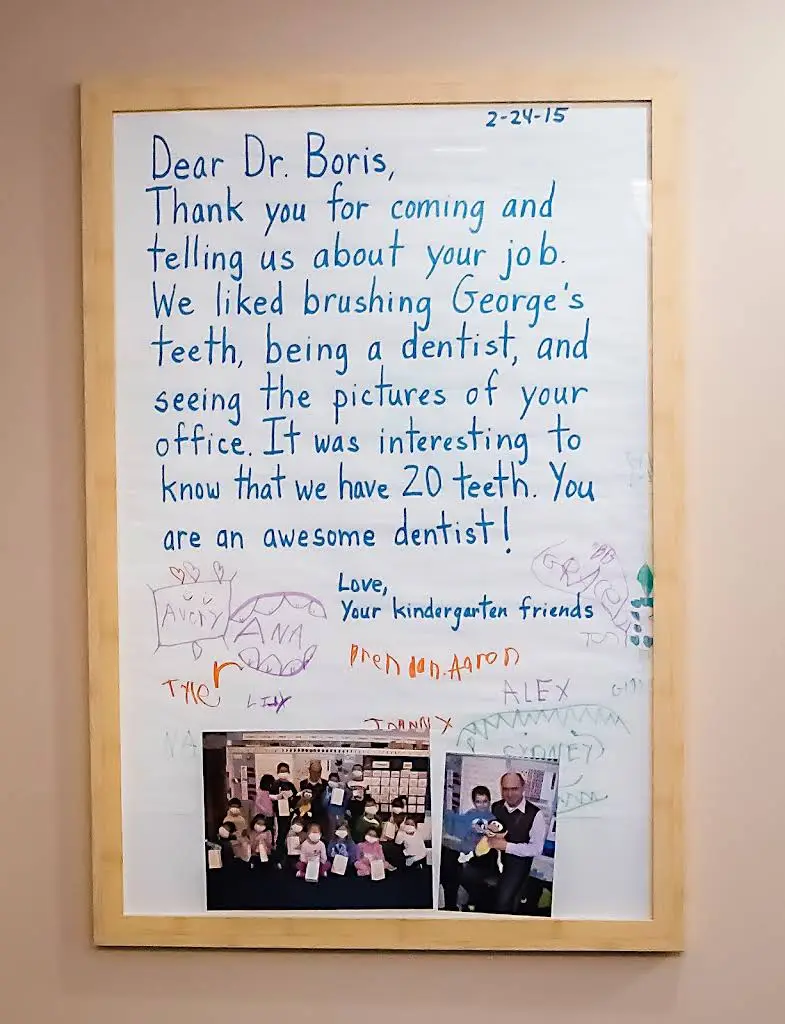 2-24-15
Dear Dr. Boris,
Thank you for coming and
telling us about your job.
We liked brushing George's
teeth, being a dentist, and
seeing the pictures of your
office. It was interesting to
know that we have 20 teeth. You
are an awesome dentist!
Love,
Your kindergarten friends
GRACE
AVERY
ANA
Brendan.Aaron
Tyler
LILY
ALEX
SYDNEY